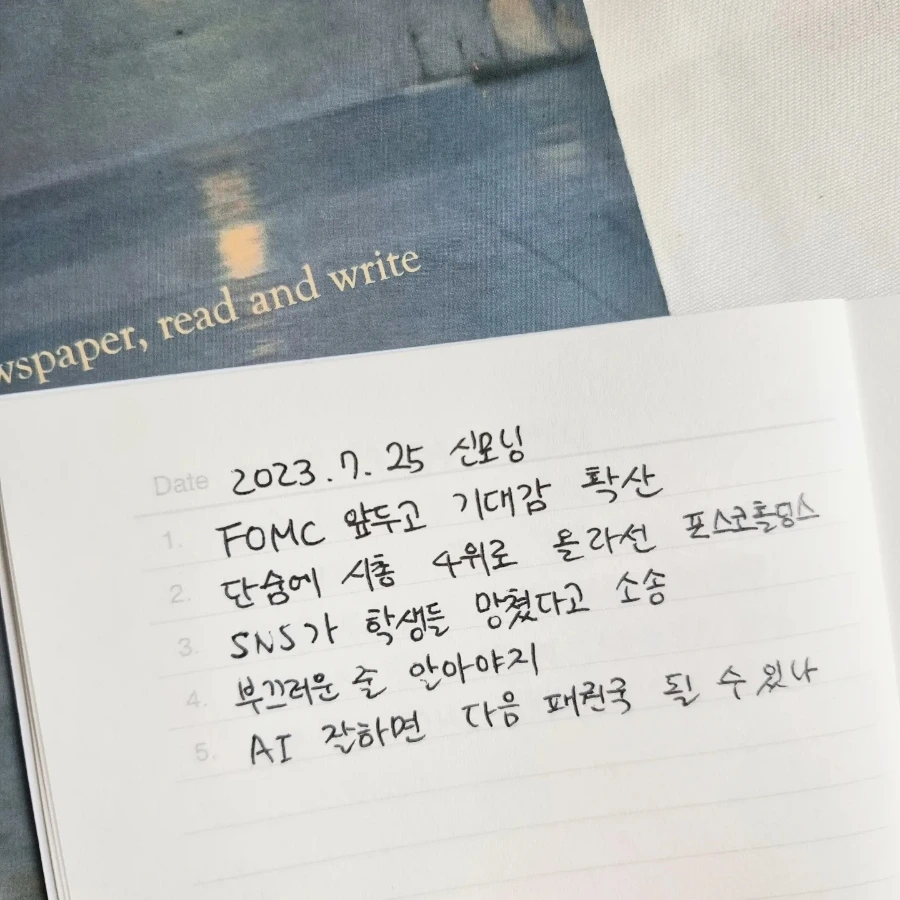 wspaper, read and write
Date 2023.7.25 신모닝
1. FOMC 앞두고 기대감 확산
2. 단숨에 시총 4위로 올라선 포스코홀딩스
3. SNS가 학생들 망쳤다고 소송
4. 부끄러운 줄 알아야지
5. AI 잘하면 다음 패권국 될 수 있나